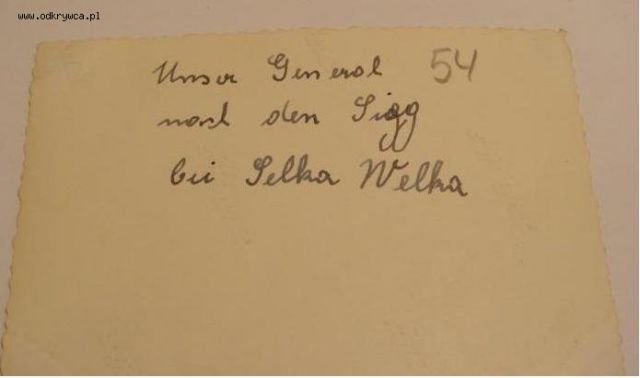 www.odkrywca.pl
Unser General 54
nach den Sigg
bei Selka Welka